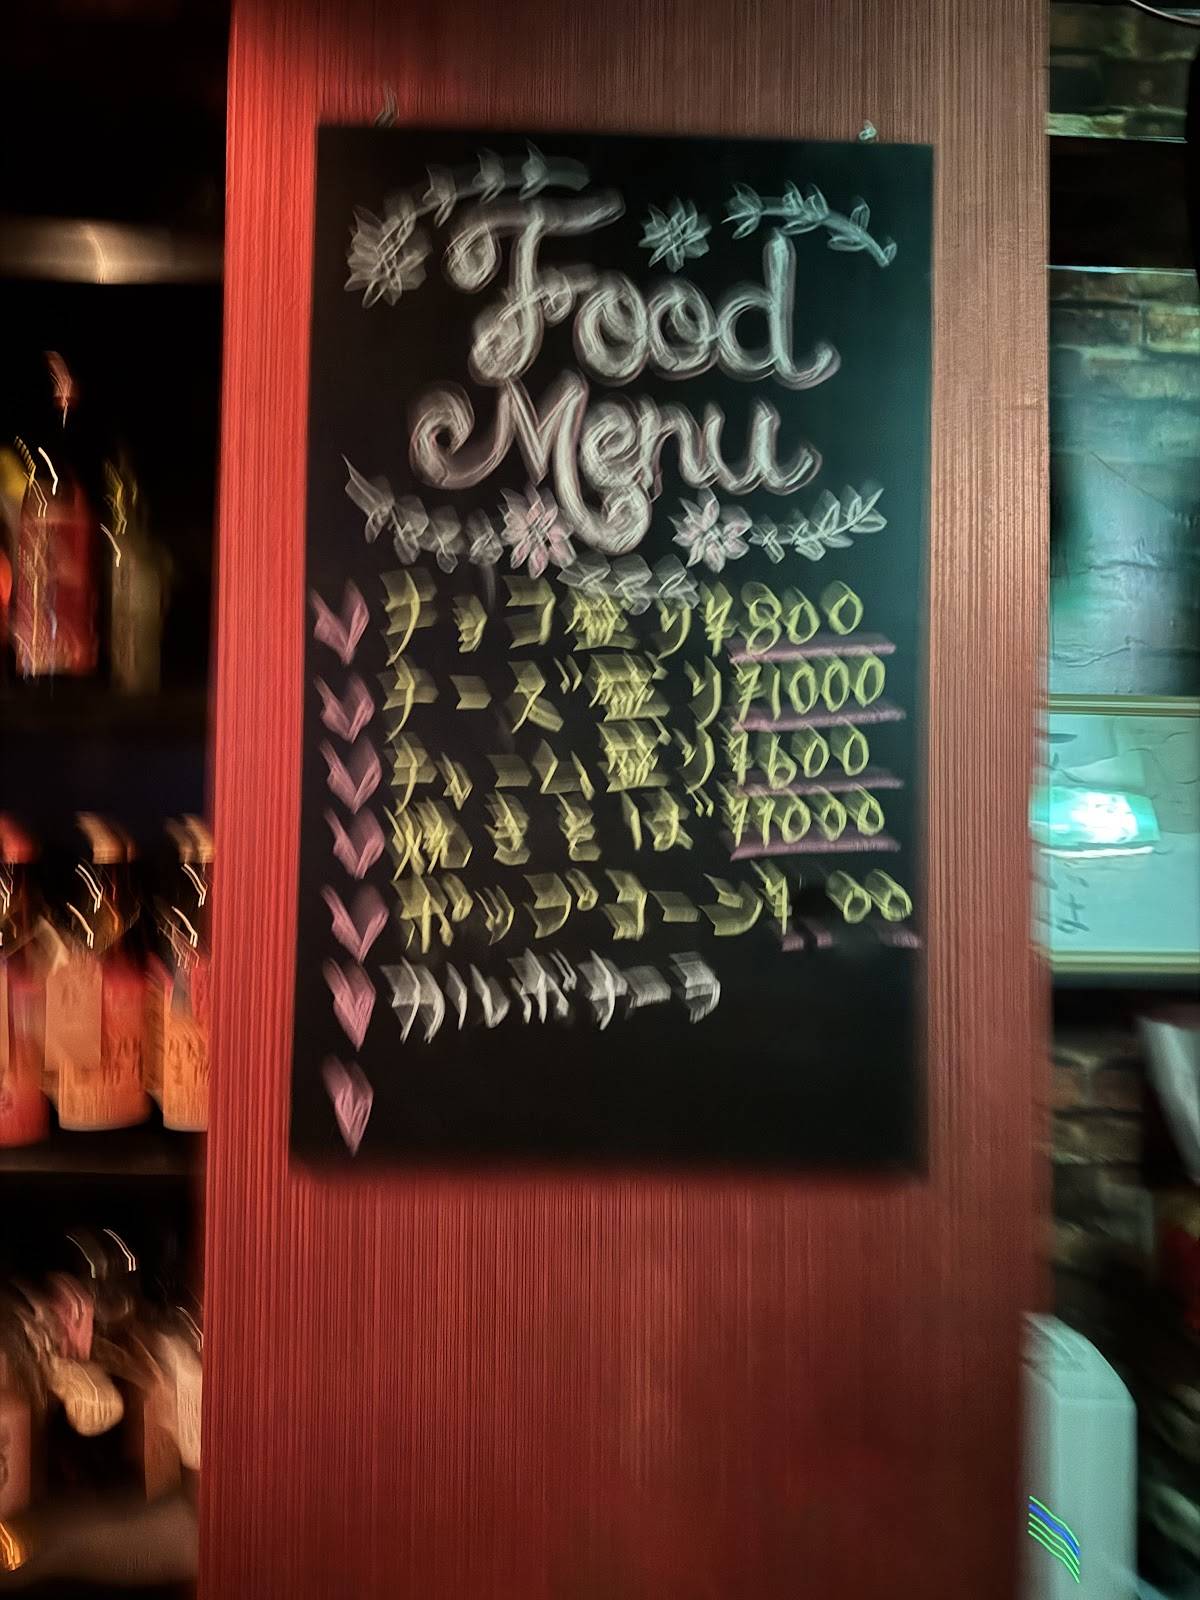 Food
Menu
ナッツ盛り ¥800
チーズ盛り ¥1000
チャーム盛り ¥600
焼きそば ¥1000
ポップコーン ¥ 00
カルボナーラ